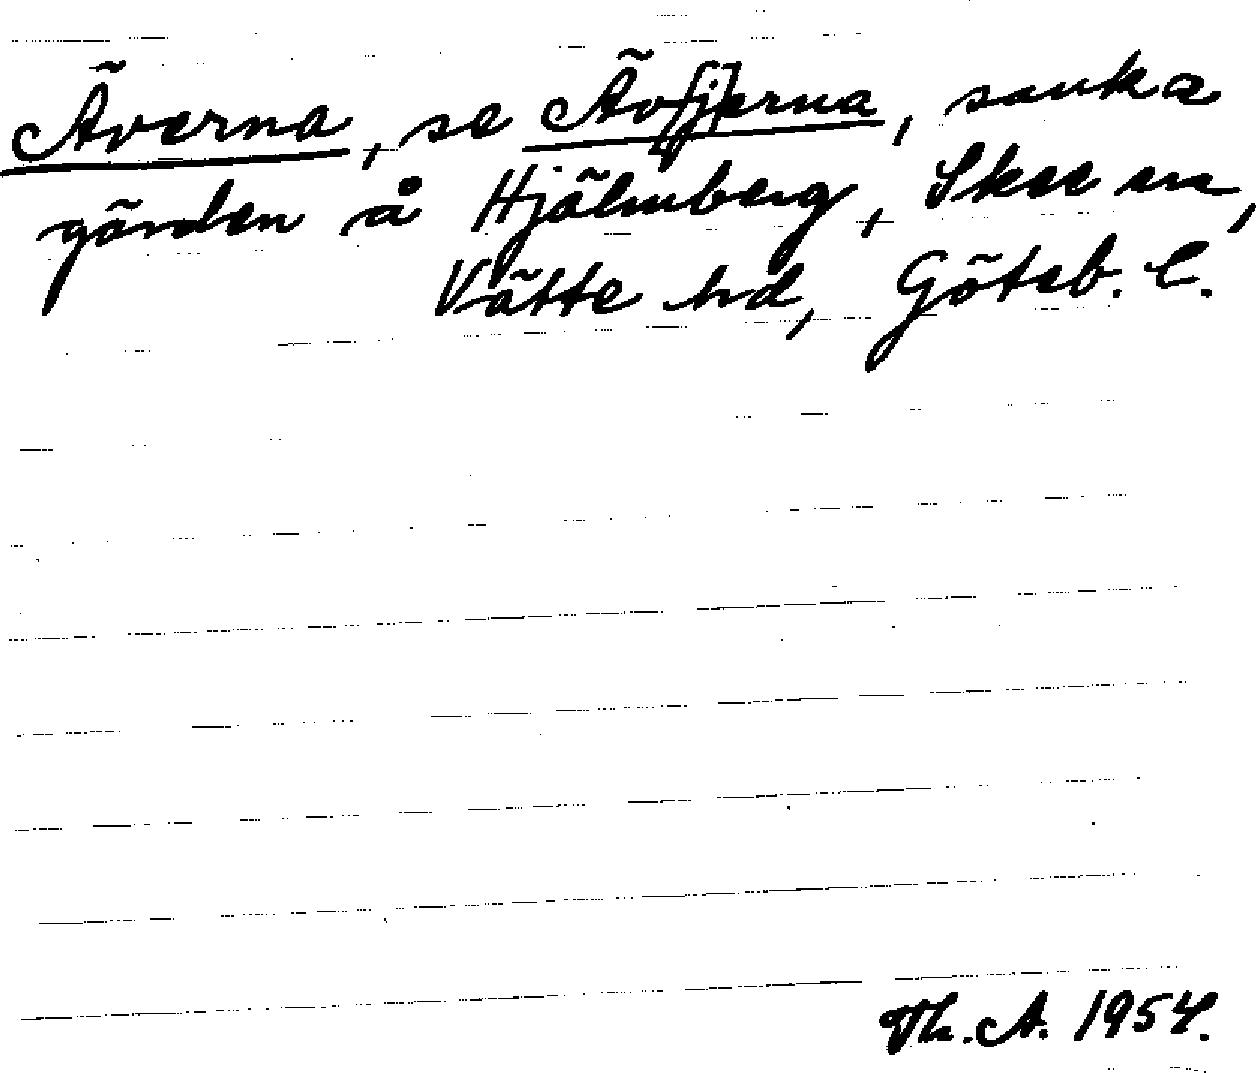 Äverna, se Äv[j]erna, sanka
gärden å Hjälmberg, Skee sn,
Vätte hd, Göteb. l.
Th. A. 1954.